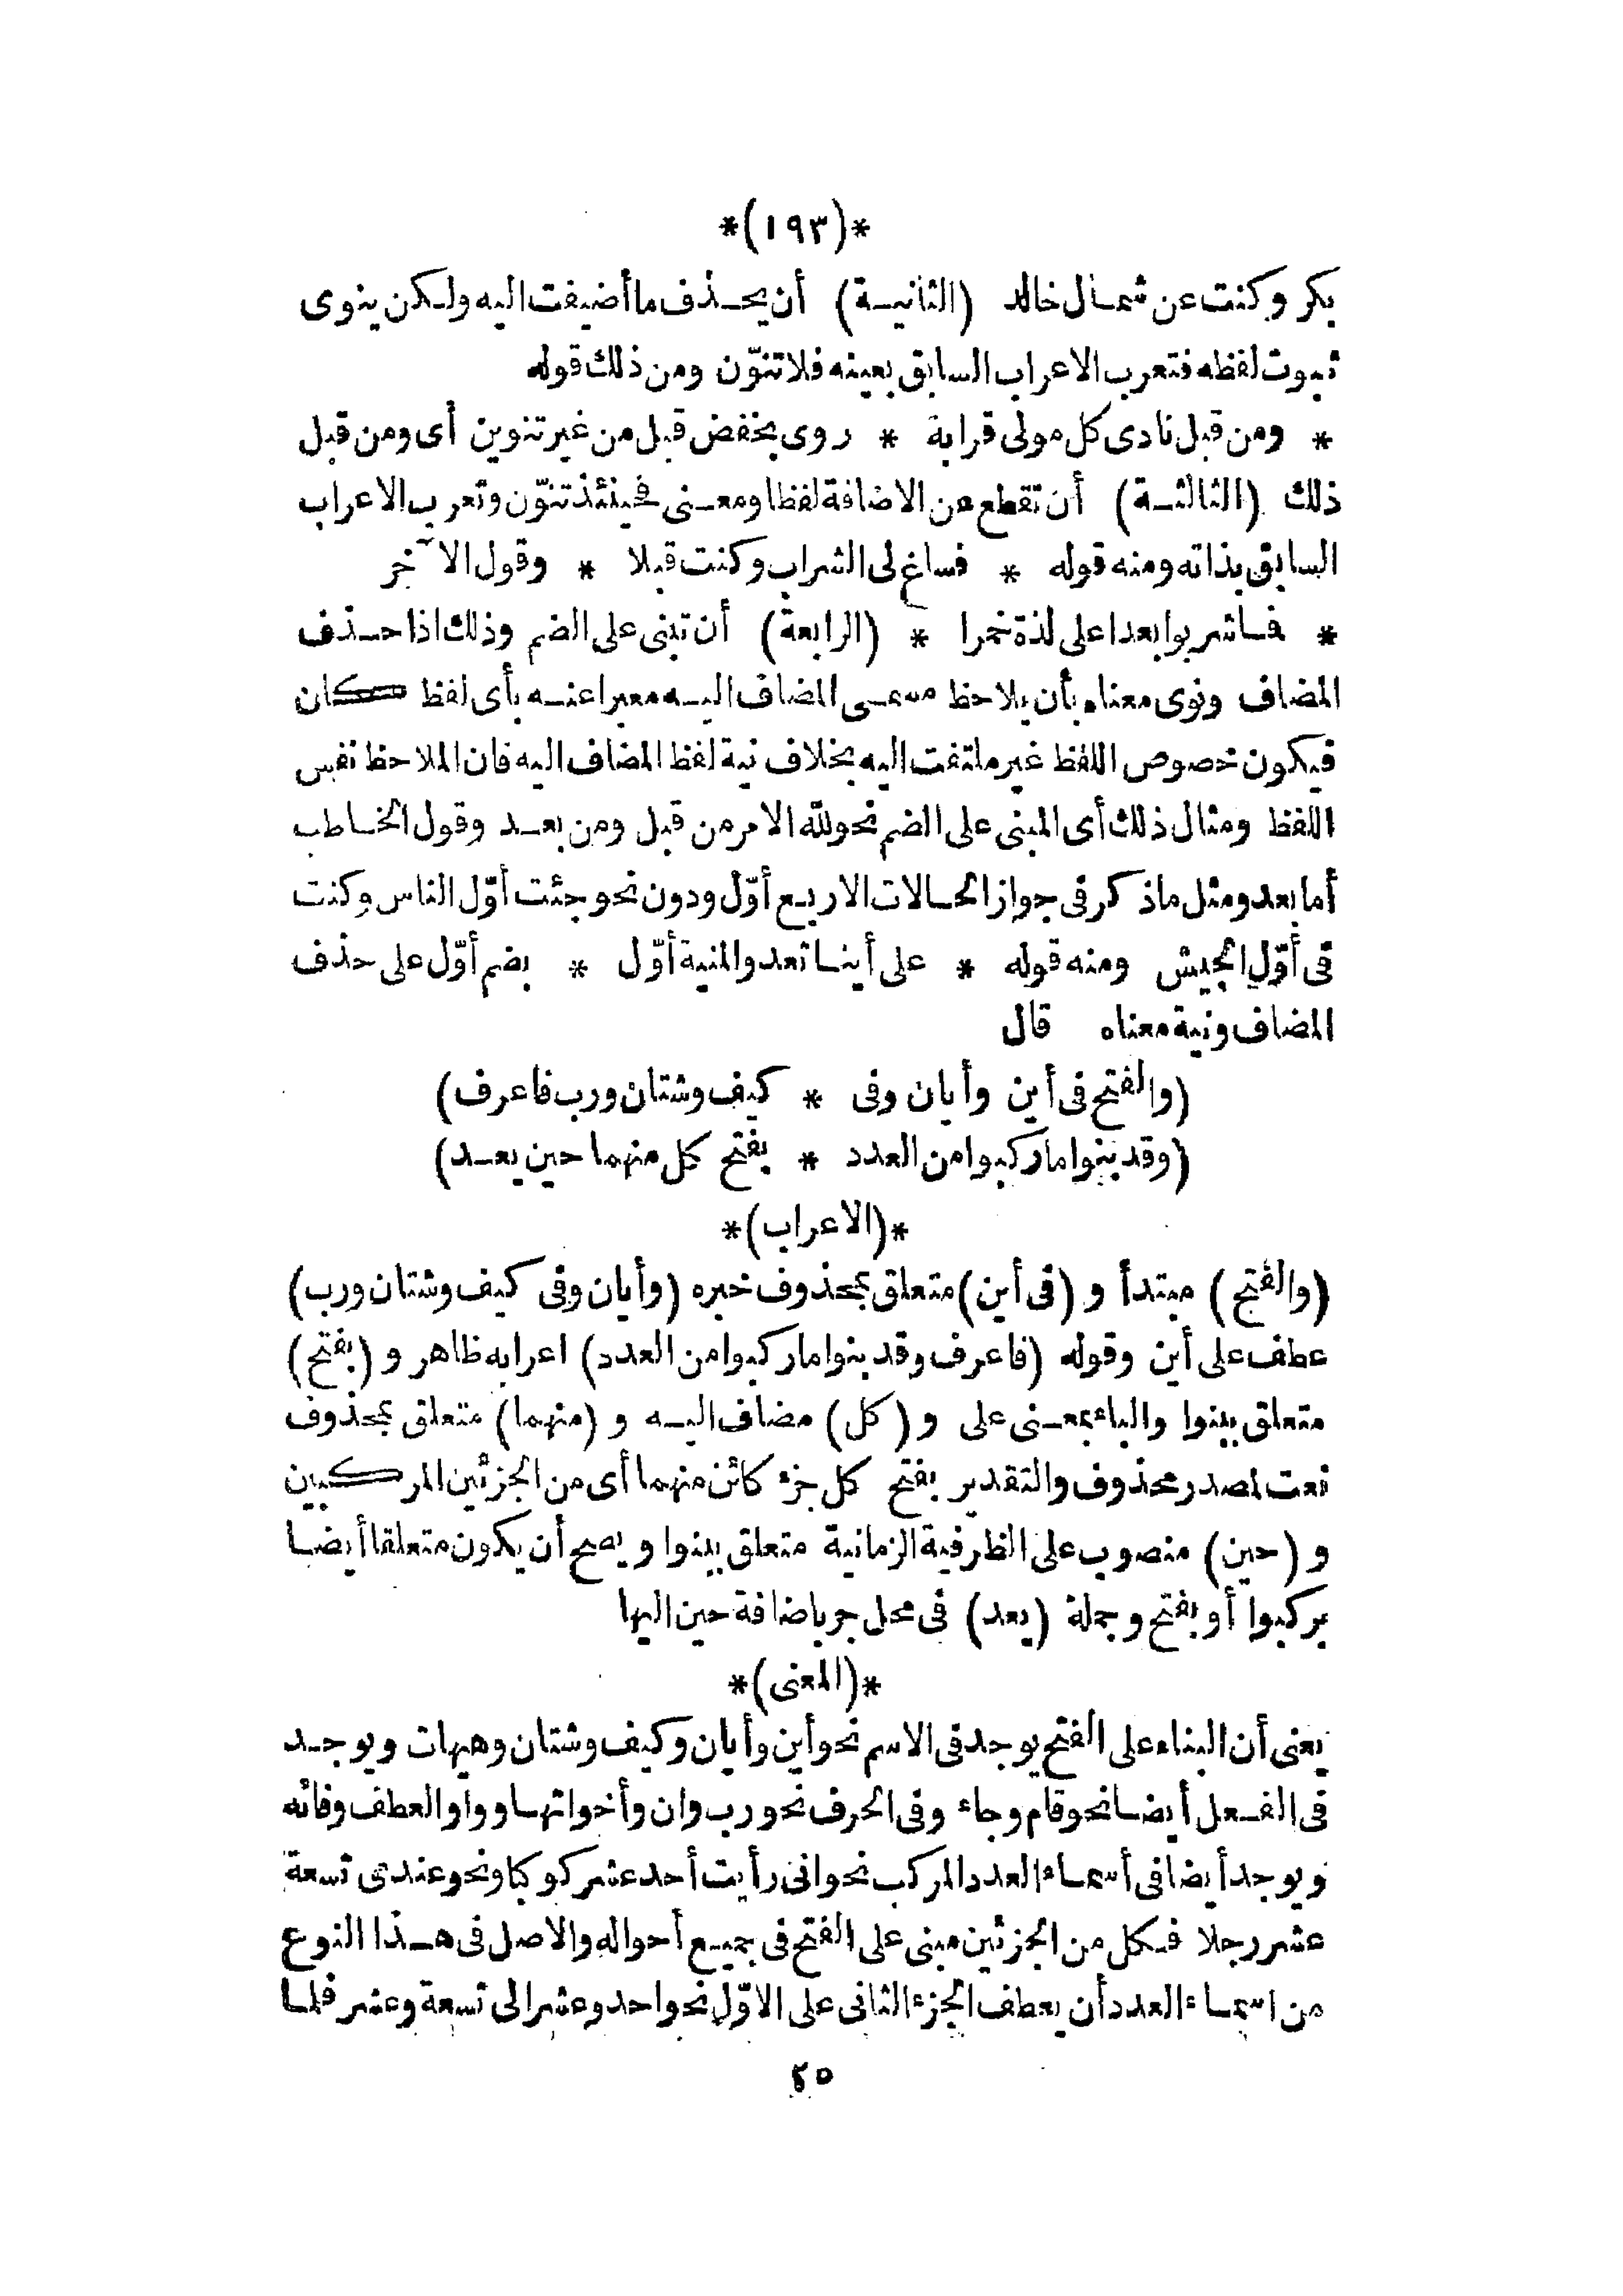 *(١٩٣)*
بكر وكنت عن شمال خالد (الثانية) أن يحذف ما أضيفت اليه ولكن ينوى
ثبوت لفظه فتعرب الاعراب السابق بعينه فلا تنوّن ومن ذلك قوله
* ومن قبل نادى كل مولى قرابة * روى بخفض قبل من غير تنوين أى ومن قبل
ذلك (الثالثة) أن تقطع عن الاضافة لفظا ومعنى فحينئذ تنوّن وتعرب الاعراب
السابق بذاته ومنه قوله * فساغ لى الشراب وكنت قبلا * وقول الآخر
* فاشربوا بعدا على لذة خمرا * (الرابعة) أن تبنى على الضم وذلك اذا حذف
المضاف ونوى معناه بأن يلاحظ مسمى المضاف اليه معبرا عنه بأى لفظ كان
فيكون خصوص اللفظ غير ملتفت اليه بخلاف نية لفظ المضاف اليه فان الملاحظ نفس
اللفظ ومثال ذلك أى المبنى على الضم نحو لله الامر من قبل ومن بعد وقول الخاطب
أما بعد ومثل ما ذكر فى جواز الحالات الاربع أوّل ودون نحو جئت أوّل الناس وكنت
فى أوّل الجيش ومنه قوله * على أينا تعدو المنية أوّل * بضم أوّل على حذف
المضاف ونية معناه قال
(والفتح فى أين وأيان وفى * كيف وشتان ورب فاعرف)
(وقد بنوا ما ركبوا من العدد * بفتح كل منهما حين يعد)
*(الاعراب)*
(والفتح) مبتدأ و (فى أين) متعلق بمحذوف خبره (وأيان وفى كيف وشتان ورب)
عطف على أين وقوله (فاعرف وقد بنوا ما ركبوا من العدد) اعرابه ظاهر و (بفتح)
متعلق ببنوا والباء بمعنى على و (كل) مضاف اليه و (منهما) متعلق بمحذوف
نعت لمصدر محذوف والتقدير بفتح كل جزء كائن منهما أى من الجزئين المركبين
و (حين) منصوب على الظرفية الزمانية متعلق ببنوا ويصح أن يكون متعلقا أيضا
بركبوا أو بفتح وجملة (يعد) فى محل جر باضافة حين اليها
*(المعنى)*
يعنى أن البناء على الفتح يوجد فى الاسم نحو أين وأيان وكيف وشتان وهيهات ويوجد
فى الفعل أيضا نحو قام وجاء وفى الحرف نحو رب وان وأخواتها وواو العطف وفائه
ويوجد أيضا فى أسماء العدد المركب نحو انى رأيت أحد عشر كوكبا ونحو عندى تسعة
عشر رجلا فكل من الجزئين مبنى على الفتح فى جميع أحواله والاصل فى هذا النوع
من اسماء العدد أن يعطف الجزء الثانى على الاوّل نحو احد وعشر الى تسعة وعشر فلما
٢٥